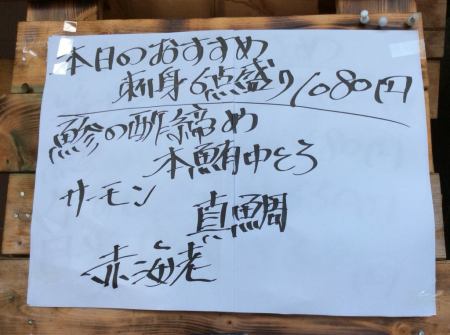 本日のおすすめ
刺身6点盛り1080円
鯵の酢締め
本鮪中とろ
サーモン
真鯛
赤海老